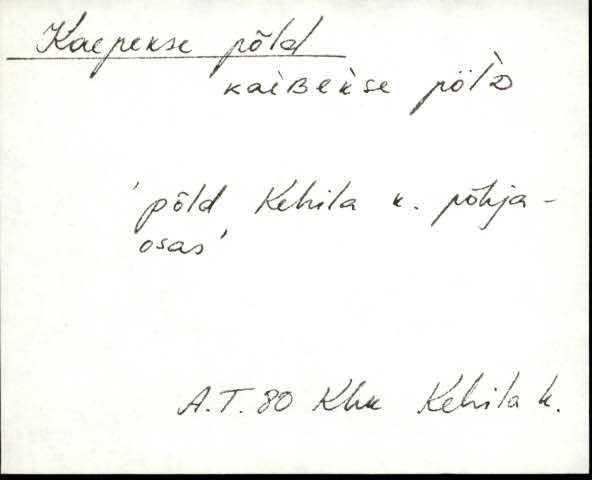 Kaepekse põld
kaiʙekse põlᴅ
'põld Kehila k. põhja-
osas'
A.T. 80 Khk Kehila k.